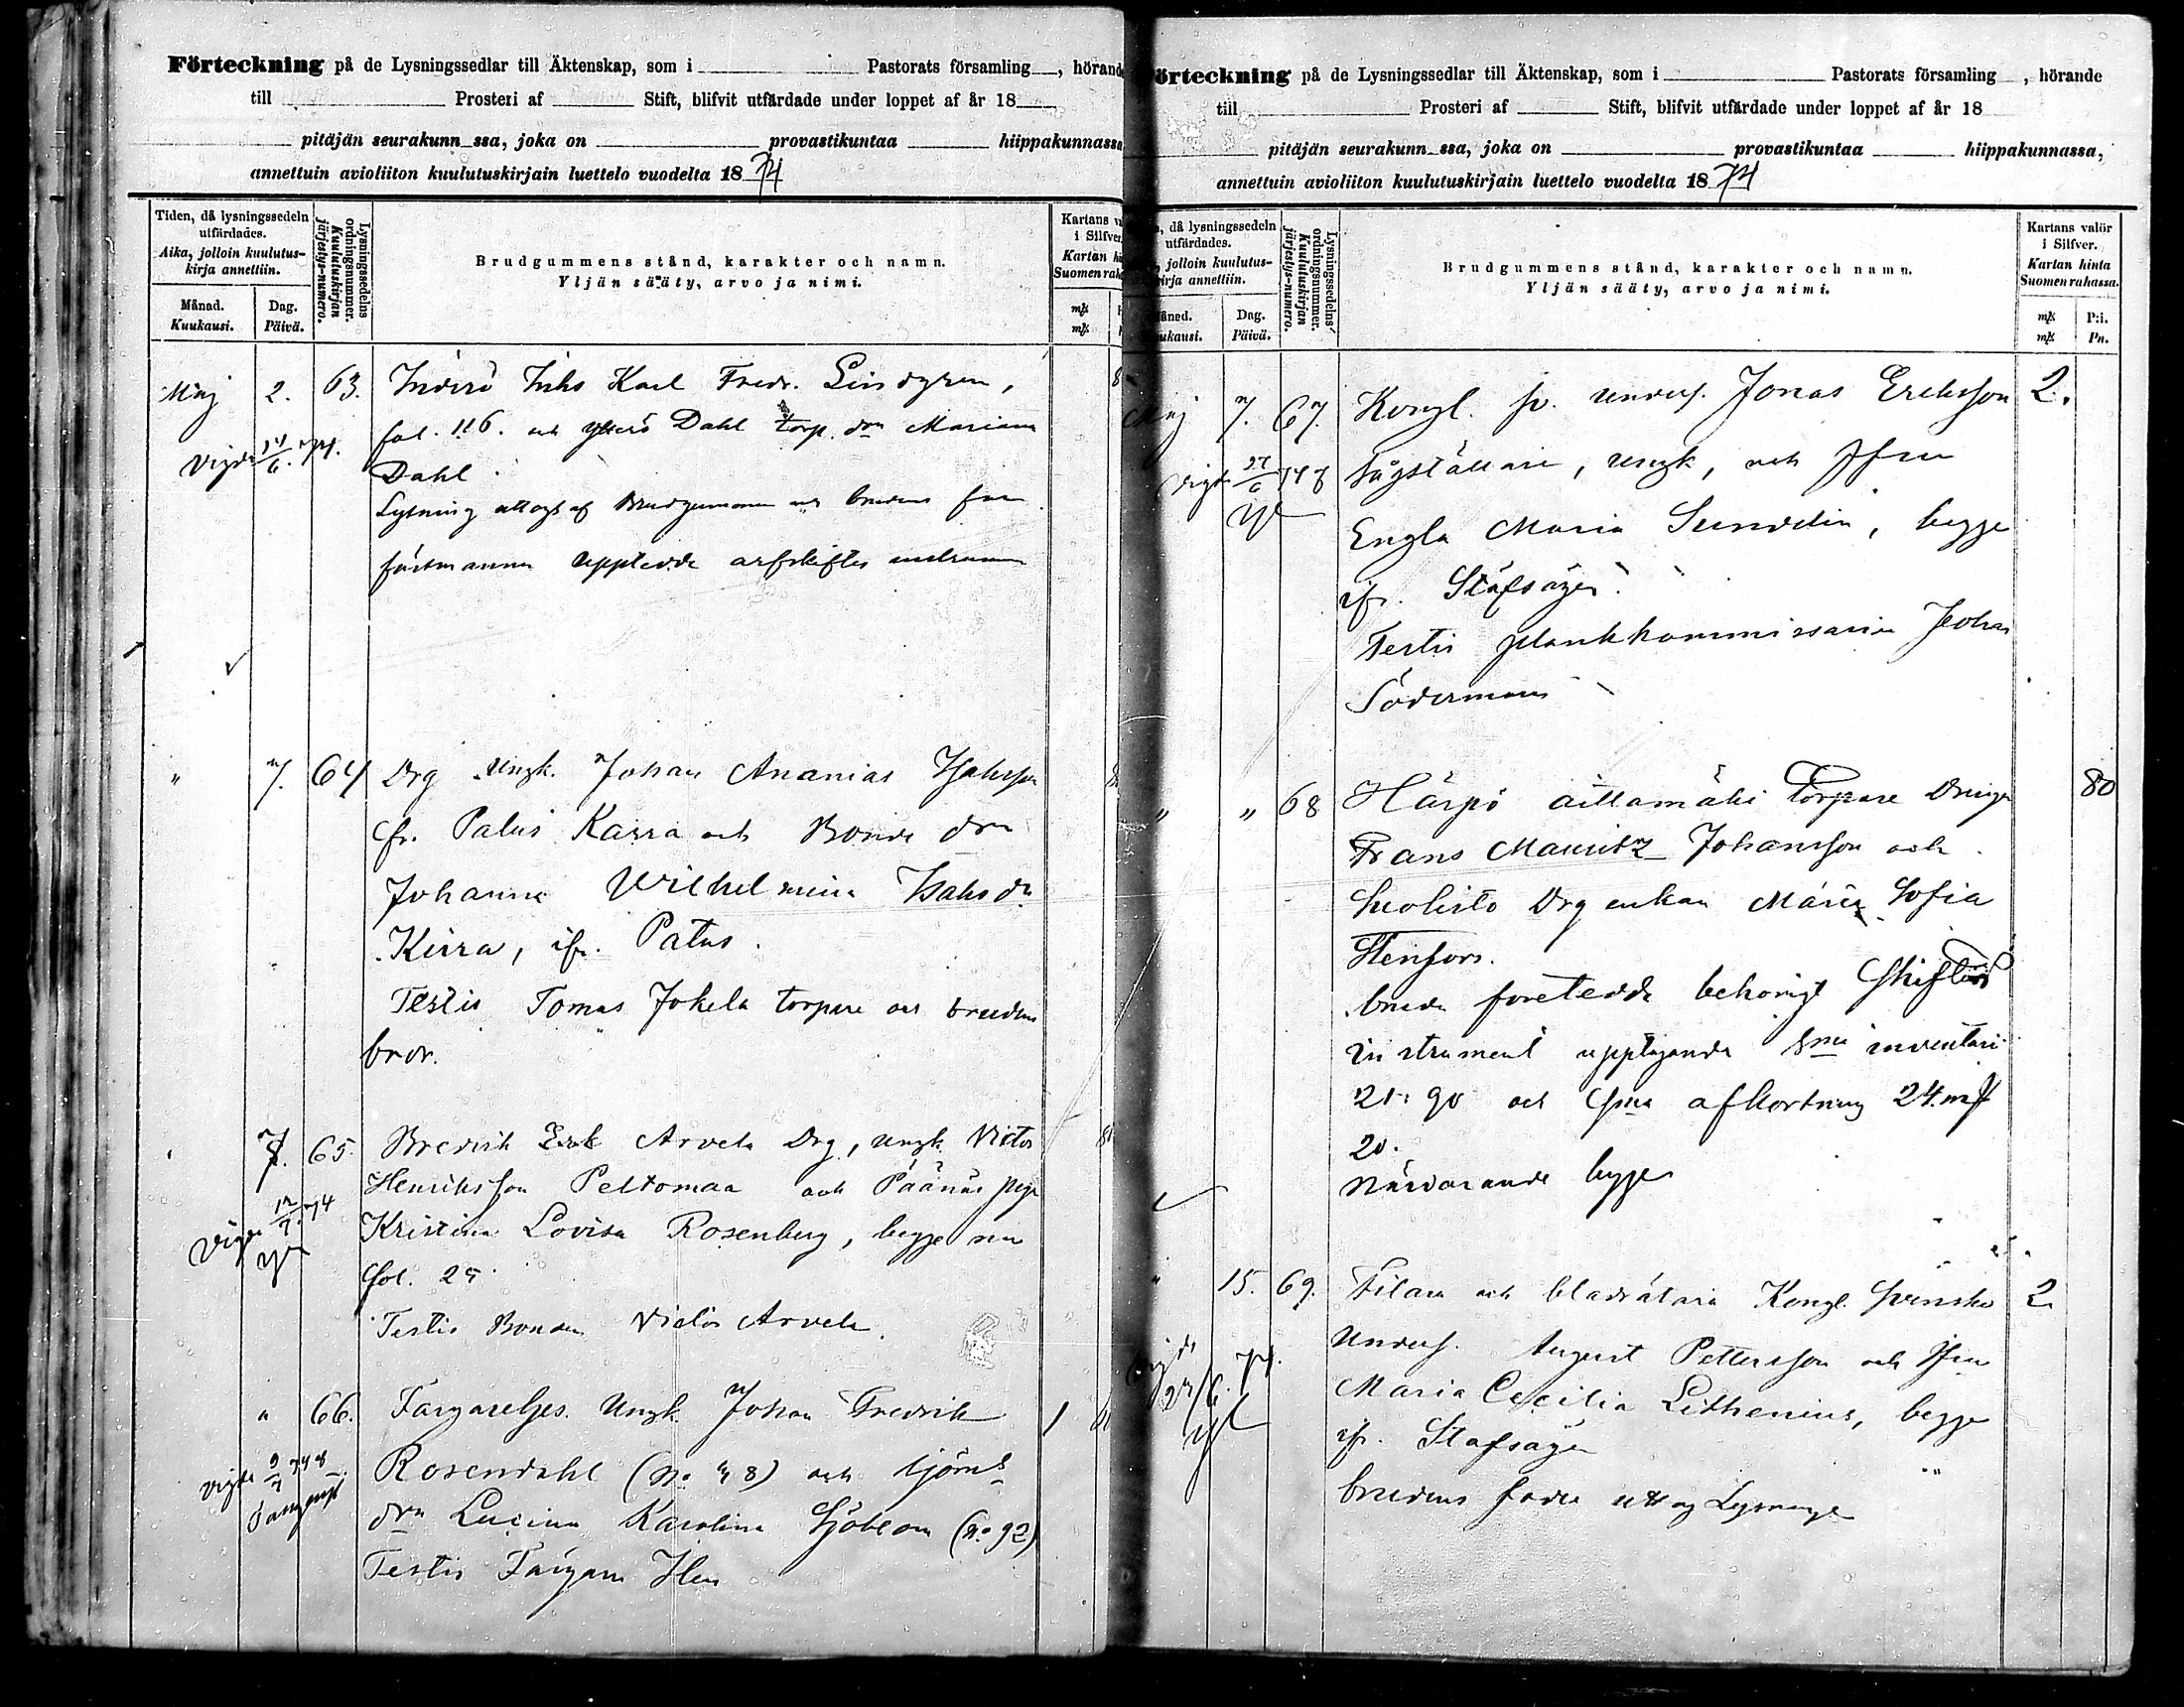 Förteckning på de Lysningssedlar till Äktenskap, som i Pastorats församling, hörande
till Prosteri af Stift, blifvit utfärdade under loppet af år 18
pitäjän seurakunn ssa, joka on provastikuntaa hiippakunnassa
annettuin avioliiton kuulutuskirjain luettelo vuodelta 1874
Tiden, då lysningssedeln utfärdades.
Aika, jolloin kuulutuskirja annettiin.
Månad. Kuukausi.
Dag. Päivä.
Lysningssedelns ordningsnummer.
Kuulutuskirjan järjestys-numero.
Brudgummens stånd, karakter och namn.
Yljän sääty, arvo ja nimi.
Kartans
i Silfver
Kartan
Suomen
Maj 2. 63. Karl Fredr. Lindgren,
fol. 116. och Dahl torp. drn Mariana
Vigda 14/6 74.
Dahl
Lysning uttogs af Brudgummen och brudens
företedde arfskiftes
" 7. 64 Drg Ungk. Johan Ananias Isaksson
fr. Palus Karra och Bonde drn
Johanna Wilhelmina Isaksdr.
Kirra, ifr. Palus.
Testis Tomas Jokela torpare och brudens
bror.
7. 65. Arvela Drg, ungk. Victor
Henriksson Peltomaa och Päänäs piga
Vigda 12/7 74
Kristina Lovisa Rosenberg, begge
fol. 25
Testis Bonden Victor Arvela.
" 66. Ungk. Johan Fredrik 1
Rosendahl (No 48) och
drn Lucina Karolina Sjöblom (No 92)
Testis
Förteckning på de Lysningssedlar till Äktenskap, som i Pastorats församling, hörande
till Prosteri af Stift, blifvit utfärdade under loppet af år 18
pitäjän seurakunn ssa, joka on provastikuntaa hiippakunnassa,
annettuin avioliiton kuulutuskirjain luettelo vuodelta 1874
då lysningssedeln utfärdades.
jolloin kuulutuskirja annettiin.
Dag. Päivä.
Lysningssedelns ordningsnummer.
Kuulutuskirjan järjestys-numero.
Brudgummens stånd, karakter och namn.
Yljän sääty, arvo ja nimi.
Kartans valör
i Silfver.
Kartan hinta
Suomen rahassa.
mk P:i.
mk Pn.
Maj 7. 67. Kongl. sv. unders. Jonas Eriksson 2.
Sågställare, ungk, och Jfrn
Engla Maria Sundelin, begge
ifr. Stafsågen.
Testis plankkommissarien Johan
Söderman
" " 68 Härpö äillamäki Torpare Dreng 80
Frans Mauritz Johansson och
Suolisto Drg enkan Maria Sofia
Stenfors.
bruden företedde behörigt Skiftes
instrument upptagande inventarie
21: 90 och afkortning 24 mk
20.
Närvarande begge
15. 69. Filare och bladrätare Kongl. Svenska 2
Unders. August Pettersson och Jfrn
Maria Cecilia Lithenius, begge
ifr. Stafsågen
brudens fader uttog Lysninge